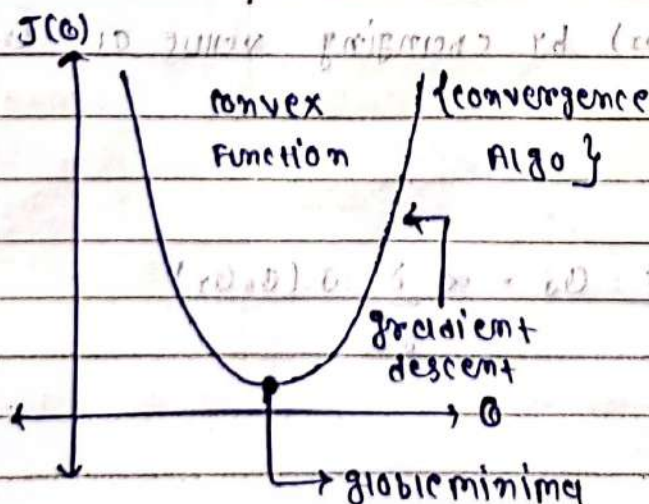 J(θ)
convex
Function
{convergence
Algo}
gradient
descent
θ
globle minima